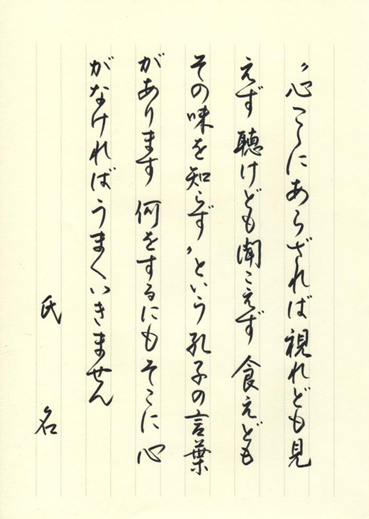 〝心こゝにあらざれば視れども見
えず 聴けども聞こえず 食えども
その味を知らず〟という孔子の言葉
があります 何をするにもそこに心
がなければうまくいきません
氏名